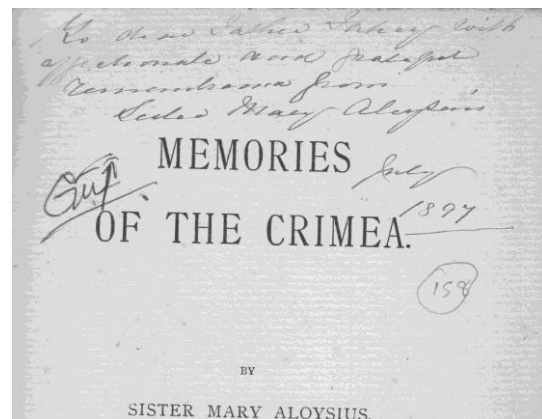 To dear Father with
affectionate and grateful
remembrance from
Sister Mary Aloysius
MEMORIES
July
OF THE CRIMEA.
1897
158
BY
SISTER MARY ALOYSIUS.